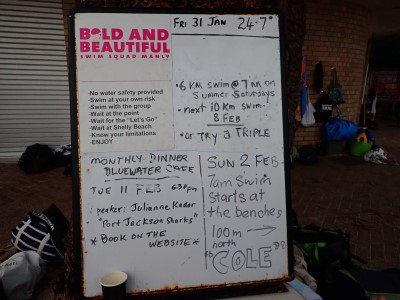 BOLD AND
BEAUTIFUL
SWIM SQUAD MANLY
-No water safety provided
-Swim at your own risk
-Swim with the group
-Wait at the point
-Wait for the "Let's Go"
-Wait at Shelly Beach
-Know your limitations
-ENJOY
FRI 31 JAN 24.7°
• 6 KM swim @ 7 am on
Summer Saturdays
• next 10 km swim -
8 FEB
TRY a TRIPLE
MONTHLY DINNER
BLUEWATER CAFE
TUE 11 FEB 630pm
Speaker: Julianne Kadar
"Port Jackson Sharks"
* BOOK ON THE
WEBSITE *
SUN 2 FEB
7am Swim
starts at
the benches
100m →
north
COLE